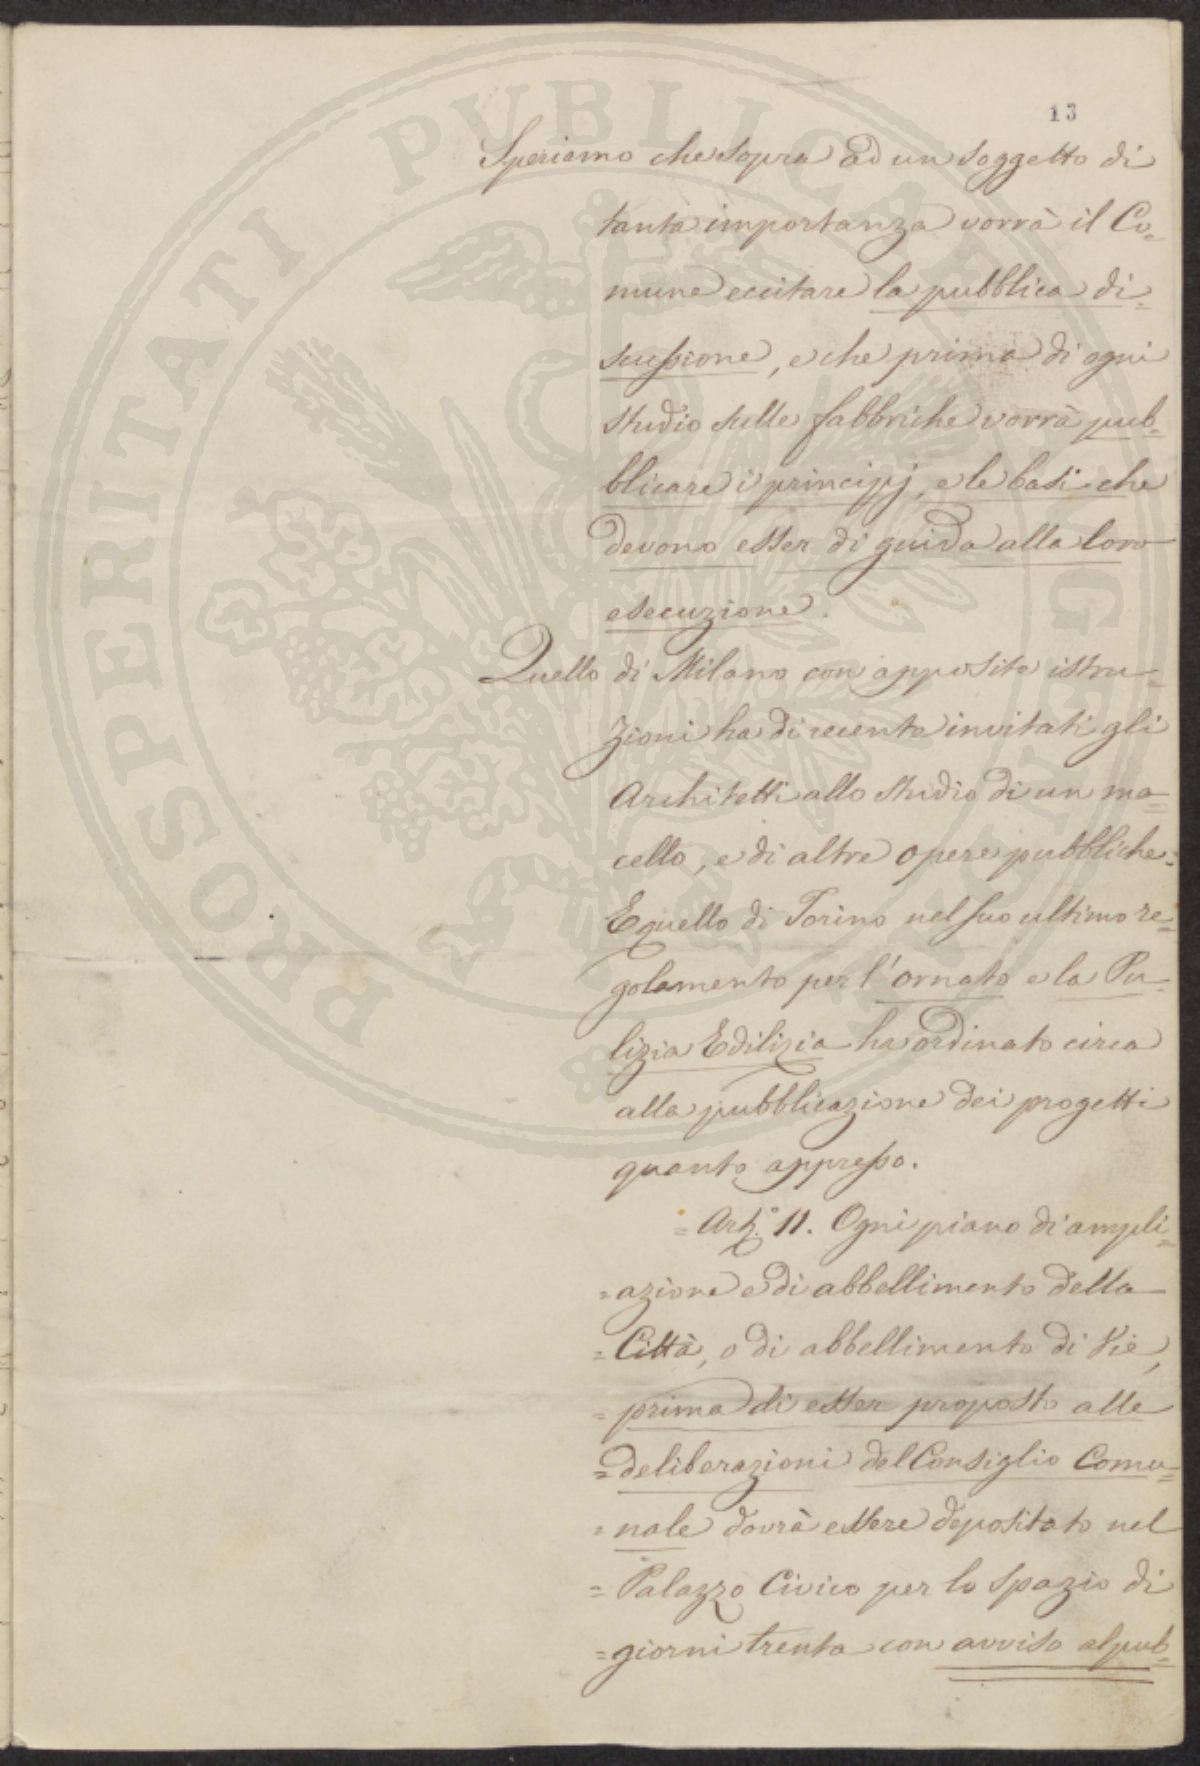 13
Speriamo che sopra ad un soggetto di
tanta importanza vorrà il Co=
mune eccitare la pubblica di=
scussione, e che prima di ogni
studio sulle fabbriche vorrà pub=
blicare i principj, e le basi che
devono esser di guida alla loro
esecuzione.
Quello di Milano con apposite istru=
zioni ha di recente invitati gli
Architetti allo studio di un ma=
cello, e di altre opere pubbliche.
E quello di Torino nel suo ultimo re=
golamento per l'ornato e la Pu=
lizia Edilizia ha ordinato circa
alla pubblicazione dei progetti
quanto appresso.
= Art.° 11. Ogni piano di ampli=
= azione e di abbellimento della
= Città, o di abbellimento di Vie,
= prima di esser proposto alle
= deliberazioni del Consiglio Comu=
= nale dovrà essere depositato nel
= Palazzo Civico per lo spazio di
= giorni trenta con avviso al pub=
PROSPERITATI PUBLICAE AUGENDAE